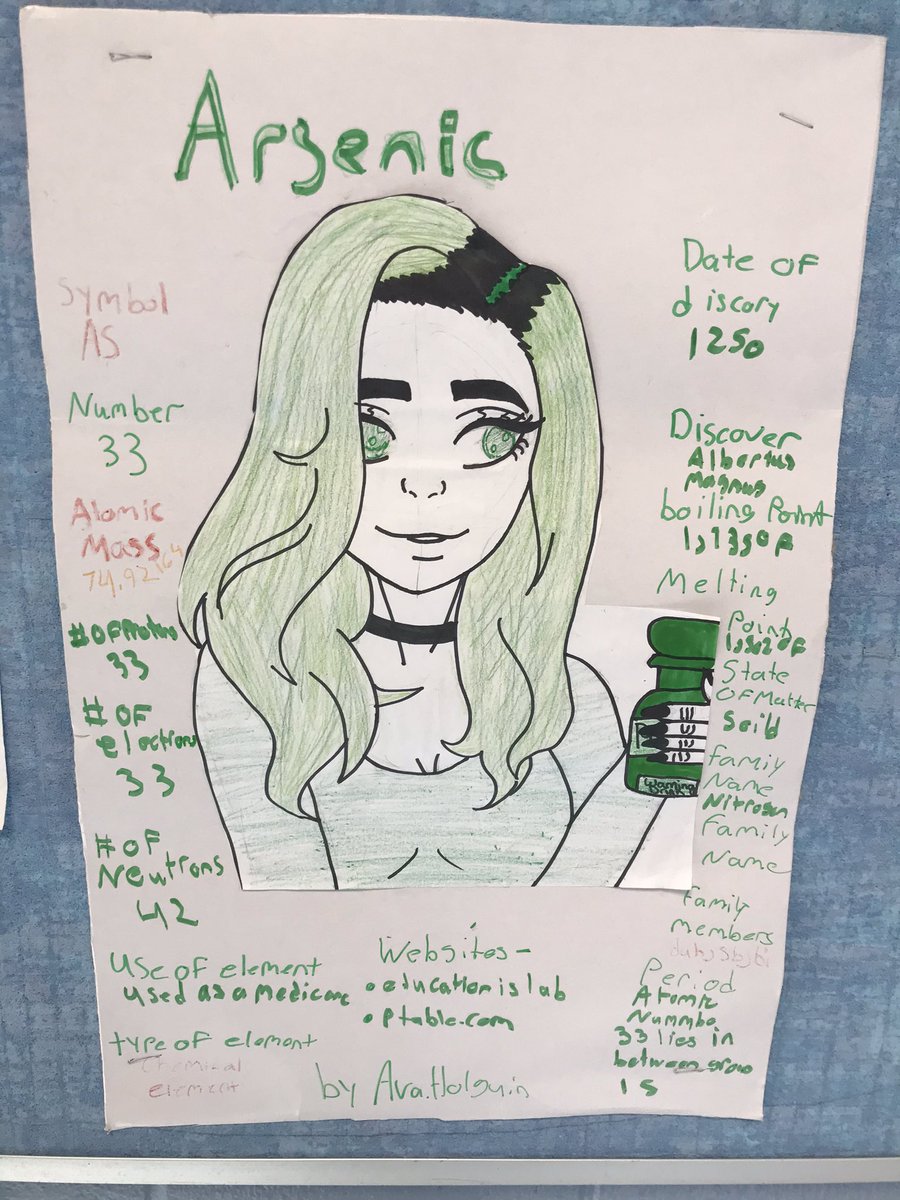 Arsenic
Symbol
AS
Number
33
Atomic
Mass
74.92164
# OF Protons
33
# OF
electrons
33
# OF
Neutrons
42
Use of element
used as a medicane
type of element
Chemical
element
Websites-
• education is lab
• Ptable.com
by Ava.Holguin
Date OF
discory
1250
Discover
Albertus
Magnus
boiling Point
Melting
Point
State
OF Matter
Soild
Famiy
Name
Nitrosen
Family
Name
Family
members
Period
Atomic
Nummbe
33 lies in
between grow
15
Warning